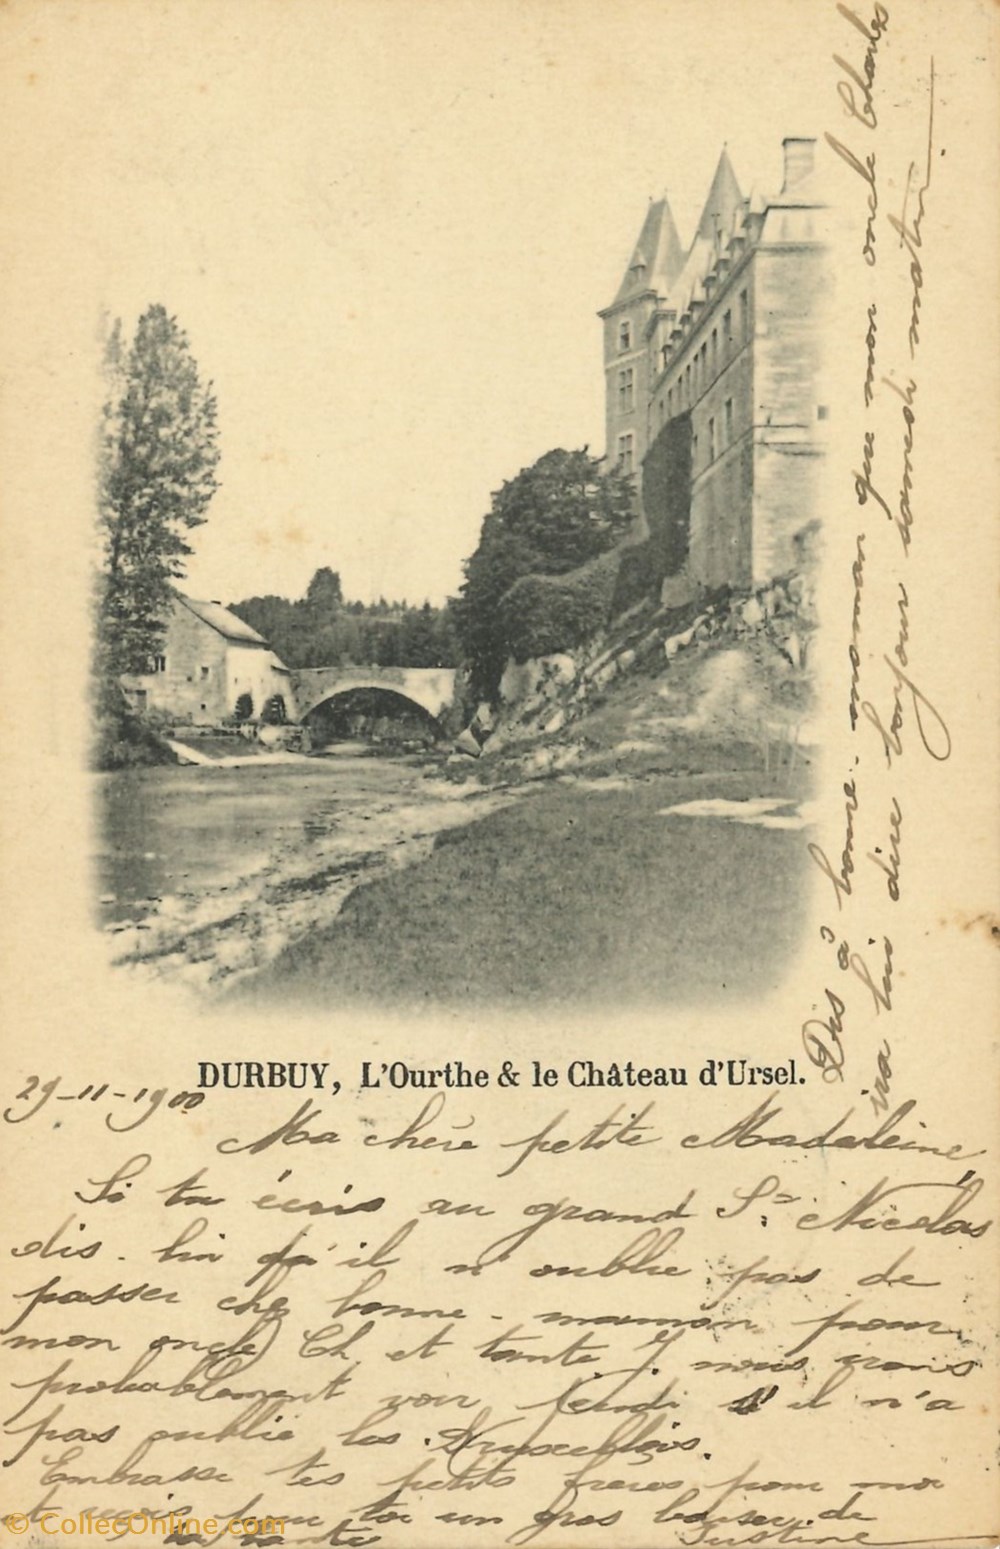 DURBUY, L'Ourthe & le Château d'Ursel.
29-11-1900
Ma chère petite Madeleine,
Si tu écris au grand St. Nicolas
dis-lui qu'il n'oublie pas de
passer chez bonne-maman pour
mon oncle Ch et tante J. nous irons
probablement voir jeudi s'il n'a
pas oublié les Bruxellois.
Embrasse tes petits frères pour moi
et reçois pour toi un gros baiser de
ta tante Justine
Dis à bonne-maman que mon oncle Charles
ira lui dire bonjour samedi matin.
© CollecOnline.com